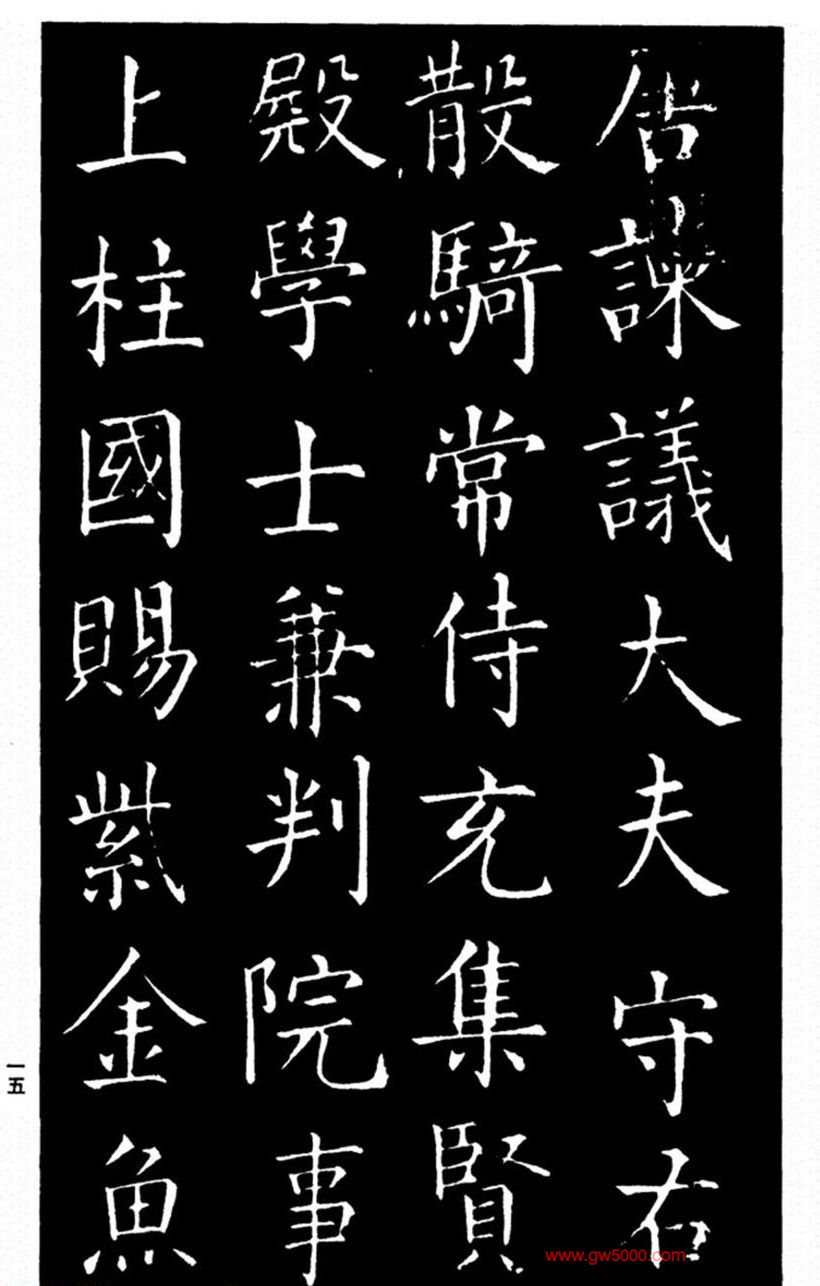 諫議大夫守右
散騎常侍充集賢
殿學士兼判院事
上柱國賜紫金魚
一五
www.gw5000.com